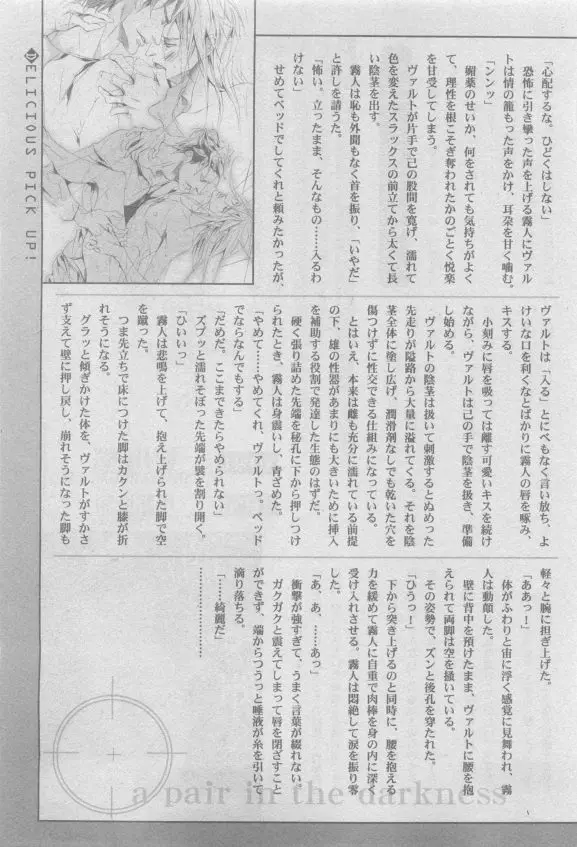 DELICIOUS PICK UP!
「心配するな。ひどくはしない」
恐怖に引き攣った声を上げる霧人にヴァル
トは情の籠もった声をかけ、耳朶を甘く嚙む。
「ンンッ」
媚薬のせいか、何をされても気持ちがよく
て、理性を根こそぎ奪われたかのごとく悦楽
を甘受してしまう。
ヴァルトが片手で己の股間を寛げ、濡れて
色を変えたスラックスの前立てから太くて長
い陰茎を出す。
霧人は恥も外聞もなく首を振り、「いやだ」
と許しを請うた。
「怖い。立ったまま、そんなもの……入るわ
けない」
せめてベッドでしてくれと頼みたかったが、
ヴァルトは「入る」とにべもなく言い放ち、よ
けいな口を利くなとばかりに霧人の唇を啄み、
キスする。
小刻みに唇を吸っては離す可愛いキスを続け
ながら、ヴァルトは己の手で陰茎を扱き、準備
し始める。
ヴァルトの陰茎は扱いて刺激するとぬめった
先走りが隘路から大量に溢れてくる。それを陰
茎全体に塗し広げ、潤滑剤なしでも乾いた穴を
傷つけずに性交できる仕組みになっている。
とはいえ、本来は雌も充分に濡れている前提
の下、雄の性器があまりにも大きいために挿入
を補助する役割で発達した生態のはずだ。
硬く張り詰めた先端を秘孔に下から押しつけ
られたとき、霧人は身震いし、青ざめた。
「やめて……やめてくれ、ヴァルトっ。ベッド
でならなんでもする」
「だめだ。ここまできたらやめられない」
ズプッと濡れそぼった先端が襞を割り開く。
「ひいいっ」
霧人は悲鳴を上げて、抱え上げられた脚で空
を蹴った。
つま先立ちで床につけた脚はカクンと膝が折
れそうになる。
グラッと傾ぎかけた体を、ヴァルトがすかさ
ず支えて壁に押し戻し、崩れそうになった脚も
軽々と腕に担ぎ上げた。
「ああっ！」
体がふわりと宙に浮く感覚に見舞われ、霧
人は動顚した。
壁に背中を預けたまま、ヴァルトに腰を抱
えられて両脚は空を搔いている。
その姿勢で、ズンと後孔を穿たれた。
「ひうっ！」
下から突き上げるのと同時に、腰を抱える
力を緩めて霧人に自重で肉棒を身の内に深く
受け入れさせる。霧人は悶絶して涙を振り零
した。
「あ、あ、……あっ」
衝撃が強すぎて、うまく言葉が綴れない。
ガクガクと震えてしまって唇を閉ざすこと
ができず、端からつうっと唾液が糸を引いて
滴り落ちる。
「……綺麗だ」
…………………………
a pair in the darkness